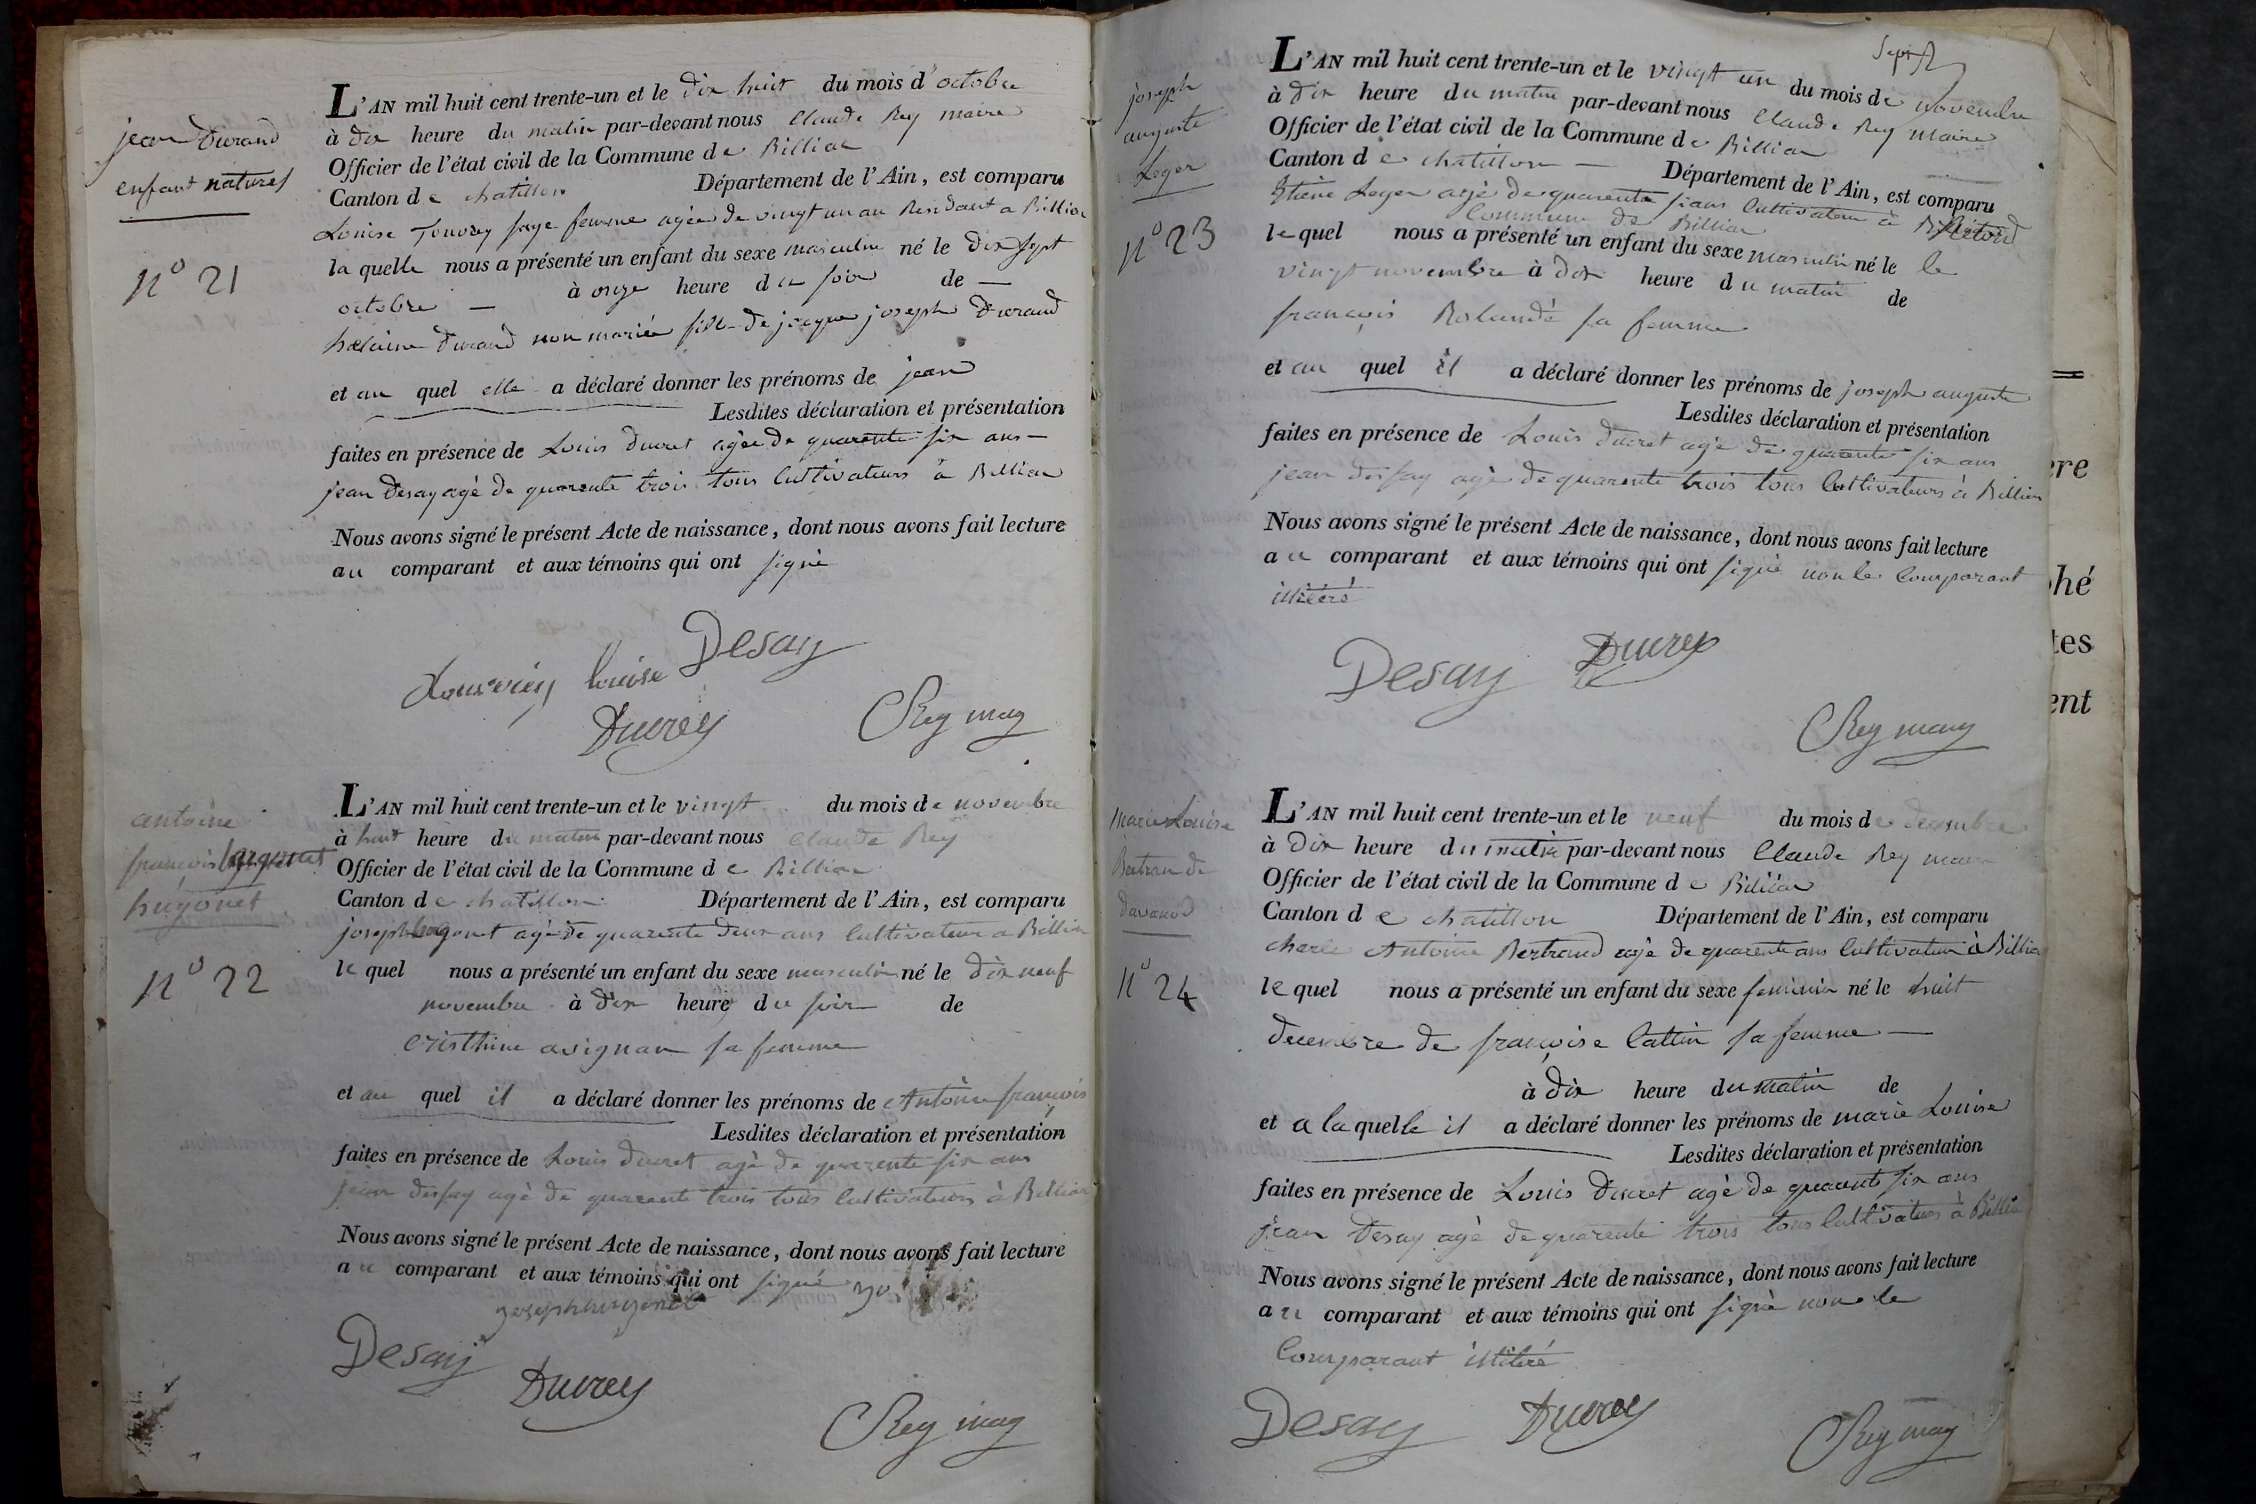 jean Durand
enfant naturel
n° 21
L'AN mil huit cent trente-un et le dix huit du mois d'octobre
à dix heure du matin par-devant nous Claude Rey maire
Officier de l'état civil de la Commune de Billiat
Canton de chatillon Département de l'Ain, est comparu
Louise Jouvrey sage femme agée de vingt un an Residant a Billiat
la quelle nous a présenté un enfant du sexe masculin né le dix sept
octobre — à onze heure du soir de —
helaine Durand non mariée fille de jacque joseph Durand
et au quel elle a déclaré donner les prénoms de jean
Lesdites déclaration et présentation
faites en présence de Louis Ducret agée de quarente six ans —
jean Desay agé de quarente trois tous Cultivateurs à Billiat
Nous avons signé le présent Acte de naissance, dont nous avons fait lecture
au comparant et aux témoins qui ont signé
louise Desay
Ducrey CRey
antoine
françois
hugonet
n° 22
L'AN mil huit cent trente-un et le vingt du mois de novembre
à huit heure du matin par-devant nous Claude Rey
Officier de l'état civil de la Commune de Billiat
Canton de chatillon Département de l'Ain, est comparu
joseph hugonet agé de quarente deux ans Cultivateur a Billiat
le quel nous a présenté un enfant du sexe masculin né le dix neuf
novembre à dix heure du soir de
Cristhine avignan sa femme
et au quel il a déclaré donner les prénoms de Antoine françois
Lesdites déclaration et présentation
faites en présence de Louis Ducret agé de quarente six ans
jean Desay agé de quarente trois tous Cultivateurs à Billiat
Nous avons signé le présent Acte de naissance, dont nous avons fait lecture
au comparant et aux témoins qui ont signé
joseph hugonet
Desay
Ducrey
CRey
joseph
auguste
Leger
n° 23
L'AN mil huit cent trente-un et le vingt un du mois de novembre
à dix heure du matin par-devant nous Claude Rey maire
Officier de l'état civil de la Commune de Billiat
Canton de chatillon — Département de l'Ain, est comparu
Etiene Leger agé de quarente six ans Cultivateur à
Commune de Billiat
le quel nous a présenté un enfant du sexe masculin né le le
vingt novembre à dix heure du matin de
françois Rolandé sa femme
et au quel il a déclaré donner les prénoms de joseph auguste
Lesdites déclaration et présentation
faites en présence de Louis Ducret agé de quarente six ans
jean Dessay agé de quarente trois tous Cultivateurs à Billiat
Nous avons signé le présent Acte de naissance, dont nous avons fait lecture
au comparant et aux témoins qui ont signé non le Comparant
illitéré
Desay Ducrey
CRey
Marie Louise
Bertran de
davanod
n° 24
L'AN mil huit cent trente-un et le neuf du mois de decembre
à dix heure du matin par-devant nous Claude Rey maire
Officier de l'état civil de la Commune de Billiat
Canton de chatillon Département de l'Ain, est comparu
Charle Antoine Bertrand agé de quarente ans Cultivateur à Billiat
le quel nous a présenté un enfant du sexe feminin né le huit
decembre de françoise Cattin sa femme —
à dix heure du matin de
et a la quelle il a déclaré donner les prénoms de marie Louise
Lesdites déclaration et présentation
faites en présence de Louis Ducret agé de quarente six ans
jean Desay agé de quarente trois tous Cultivateurs à Billiat
Nous avons signé le présent Acte de naissance, dont nous avons fait lecture
au comparant et aux témoins qui ont signé non le
Comparant illitéré
Desay Ducrey CRey
ere
phé
tes
ent